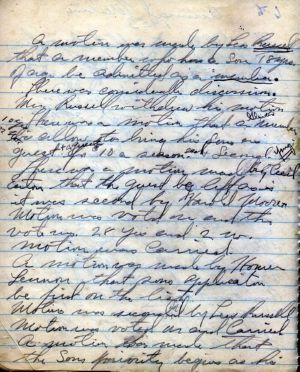 A motion was made by Leo Russel
that a member who has a Son 10 yrs
of age be admitted as a member.
There was considerable discussion.
Mr Russel withdrew his motion
There was a motion that a member
be allowed to bring his sons as
guest 10 a season
a motion made by
that the guest be left as is
it was second by Harold
Motion was voted on and the
vote was 28 yes and 2 no.
motion was Carried.
A motion was made by Homer
Lennon that Sons application
be first on the list.
Motion was seconded by Leo Russell
Motion was voted on and Carried
A motion was made that
the Sons priority begins as his